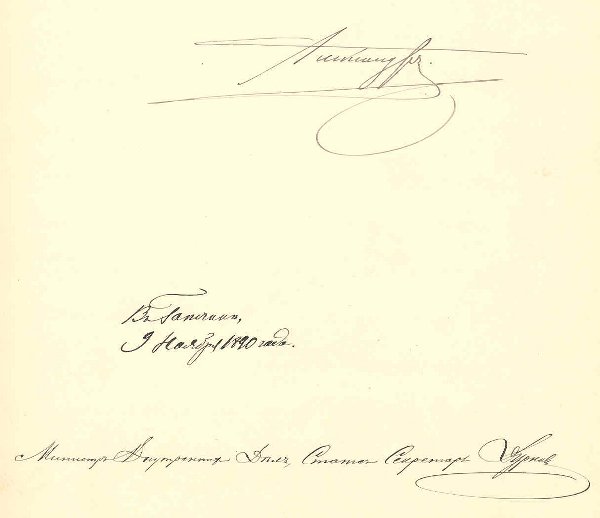 Александръ.
Въ Гатчинѣ,
9 Ноября 1890 года.
Министръ Внутреннихъ Дѣлъ, Статсъ Секретарь Дурново